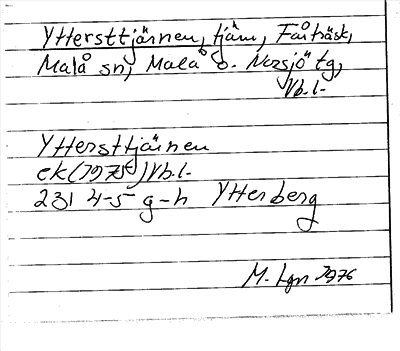 Yttersttjärnen, tjärn, Fårträsk,
Malå sn, Malå o. Norsjö tg,
Vb.l.
Yttersttjärnen
ek (1975) Vb.l.
231 4-5 g-h Ytterberg
M. Lgn 1976